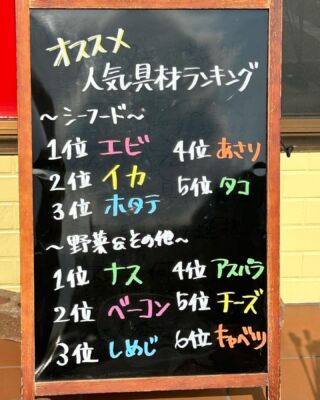 オススメ
人気具材ランキング
～シーフード～
1位 エビ
2位 イカ
3位 ホタテ
4位 あさり
5位 タコ
～野菜&その他～
1位 ナス
2位 ベーコン
3位 しめじ
4位 アスパラ
5位 チーズ
6位 キャベツ